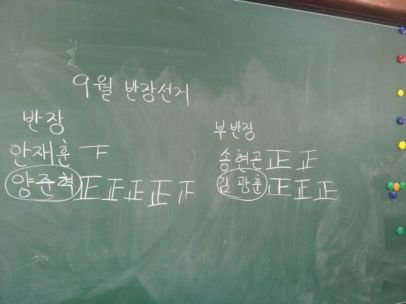 9월 반장선거
반장
안재훈 下
양준혁 正正正正下
부반장
송현곤 正正
김광훈 正正正